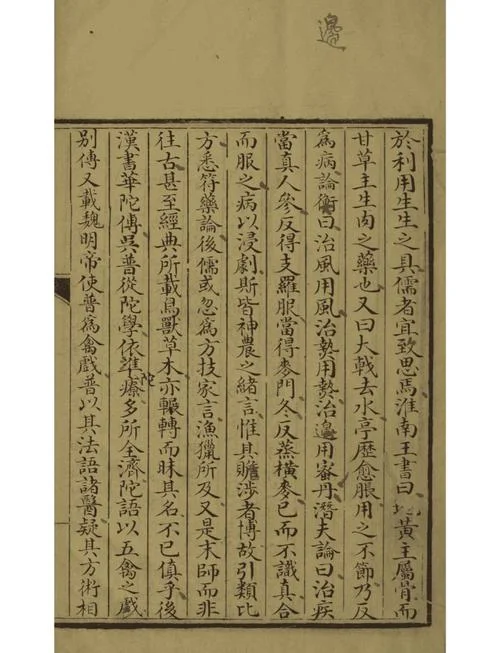 邊
於利用生生之具儒者宜致思焉淮南王書曰地黃主屬骨而
甘草主生肉之藥也又曰大戟去水亭歷愈脹用之不節乃反
爲病論衡曰治風用風治熱用熱治邊用蜜丹潛夫論曰治疾
當真人參反得支羅服當得麥門冬反蒸橫麥已而不識真合
而服之病以浸劇斯皆神農之緒言惟其贍涉者博故引類比
方悉符藥論後儒或忽爲方技家言漁獵所及又是末師而非
往古甚至經典所載鳥獸草木亦輾轉而昧其名不已傎乎後
漢書華陀傳吳普從陀學依準療多所全濟陀語以五禽之戲
陀
別傳又載魏明帝使普爲禽戲普以其法語諸醫疑其方術相